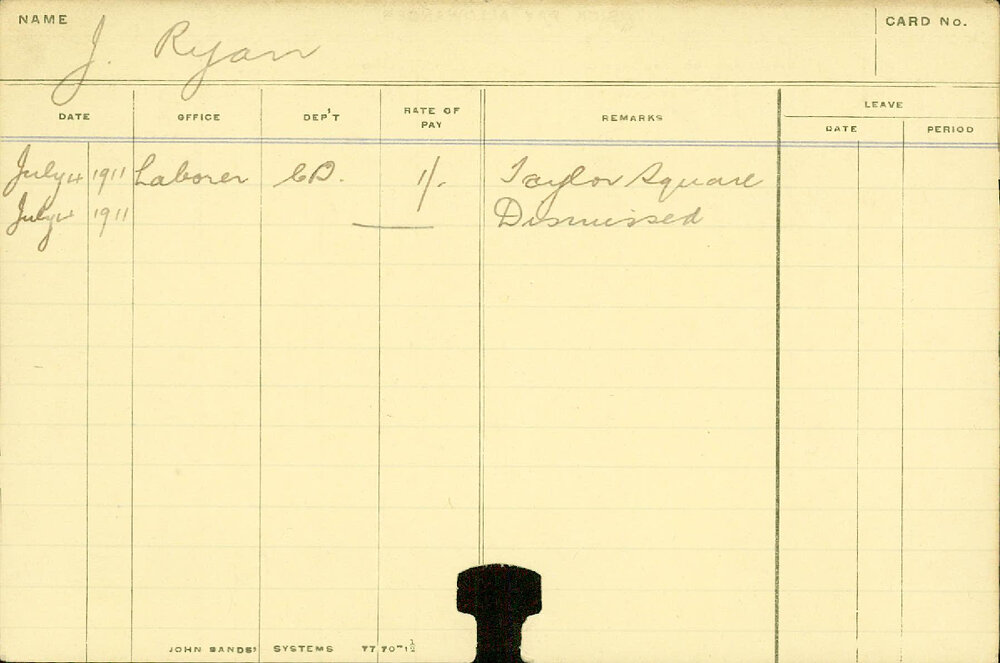 NAME J. Ryan CARD No.
DATE OFFICE DEP'T RATE OF PAY REMARKS LEAVE
DATE PERIOD
July 4 1911 Laborer 1/- Taylor Square
July 4 1911 Dismissed
JOHN SANDS' SYSTEMS